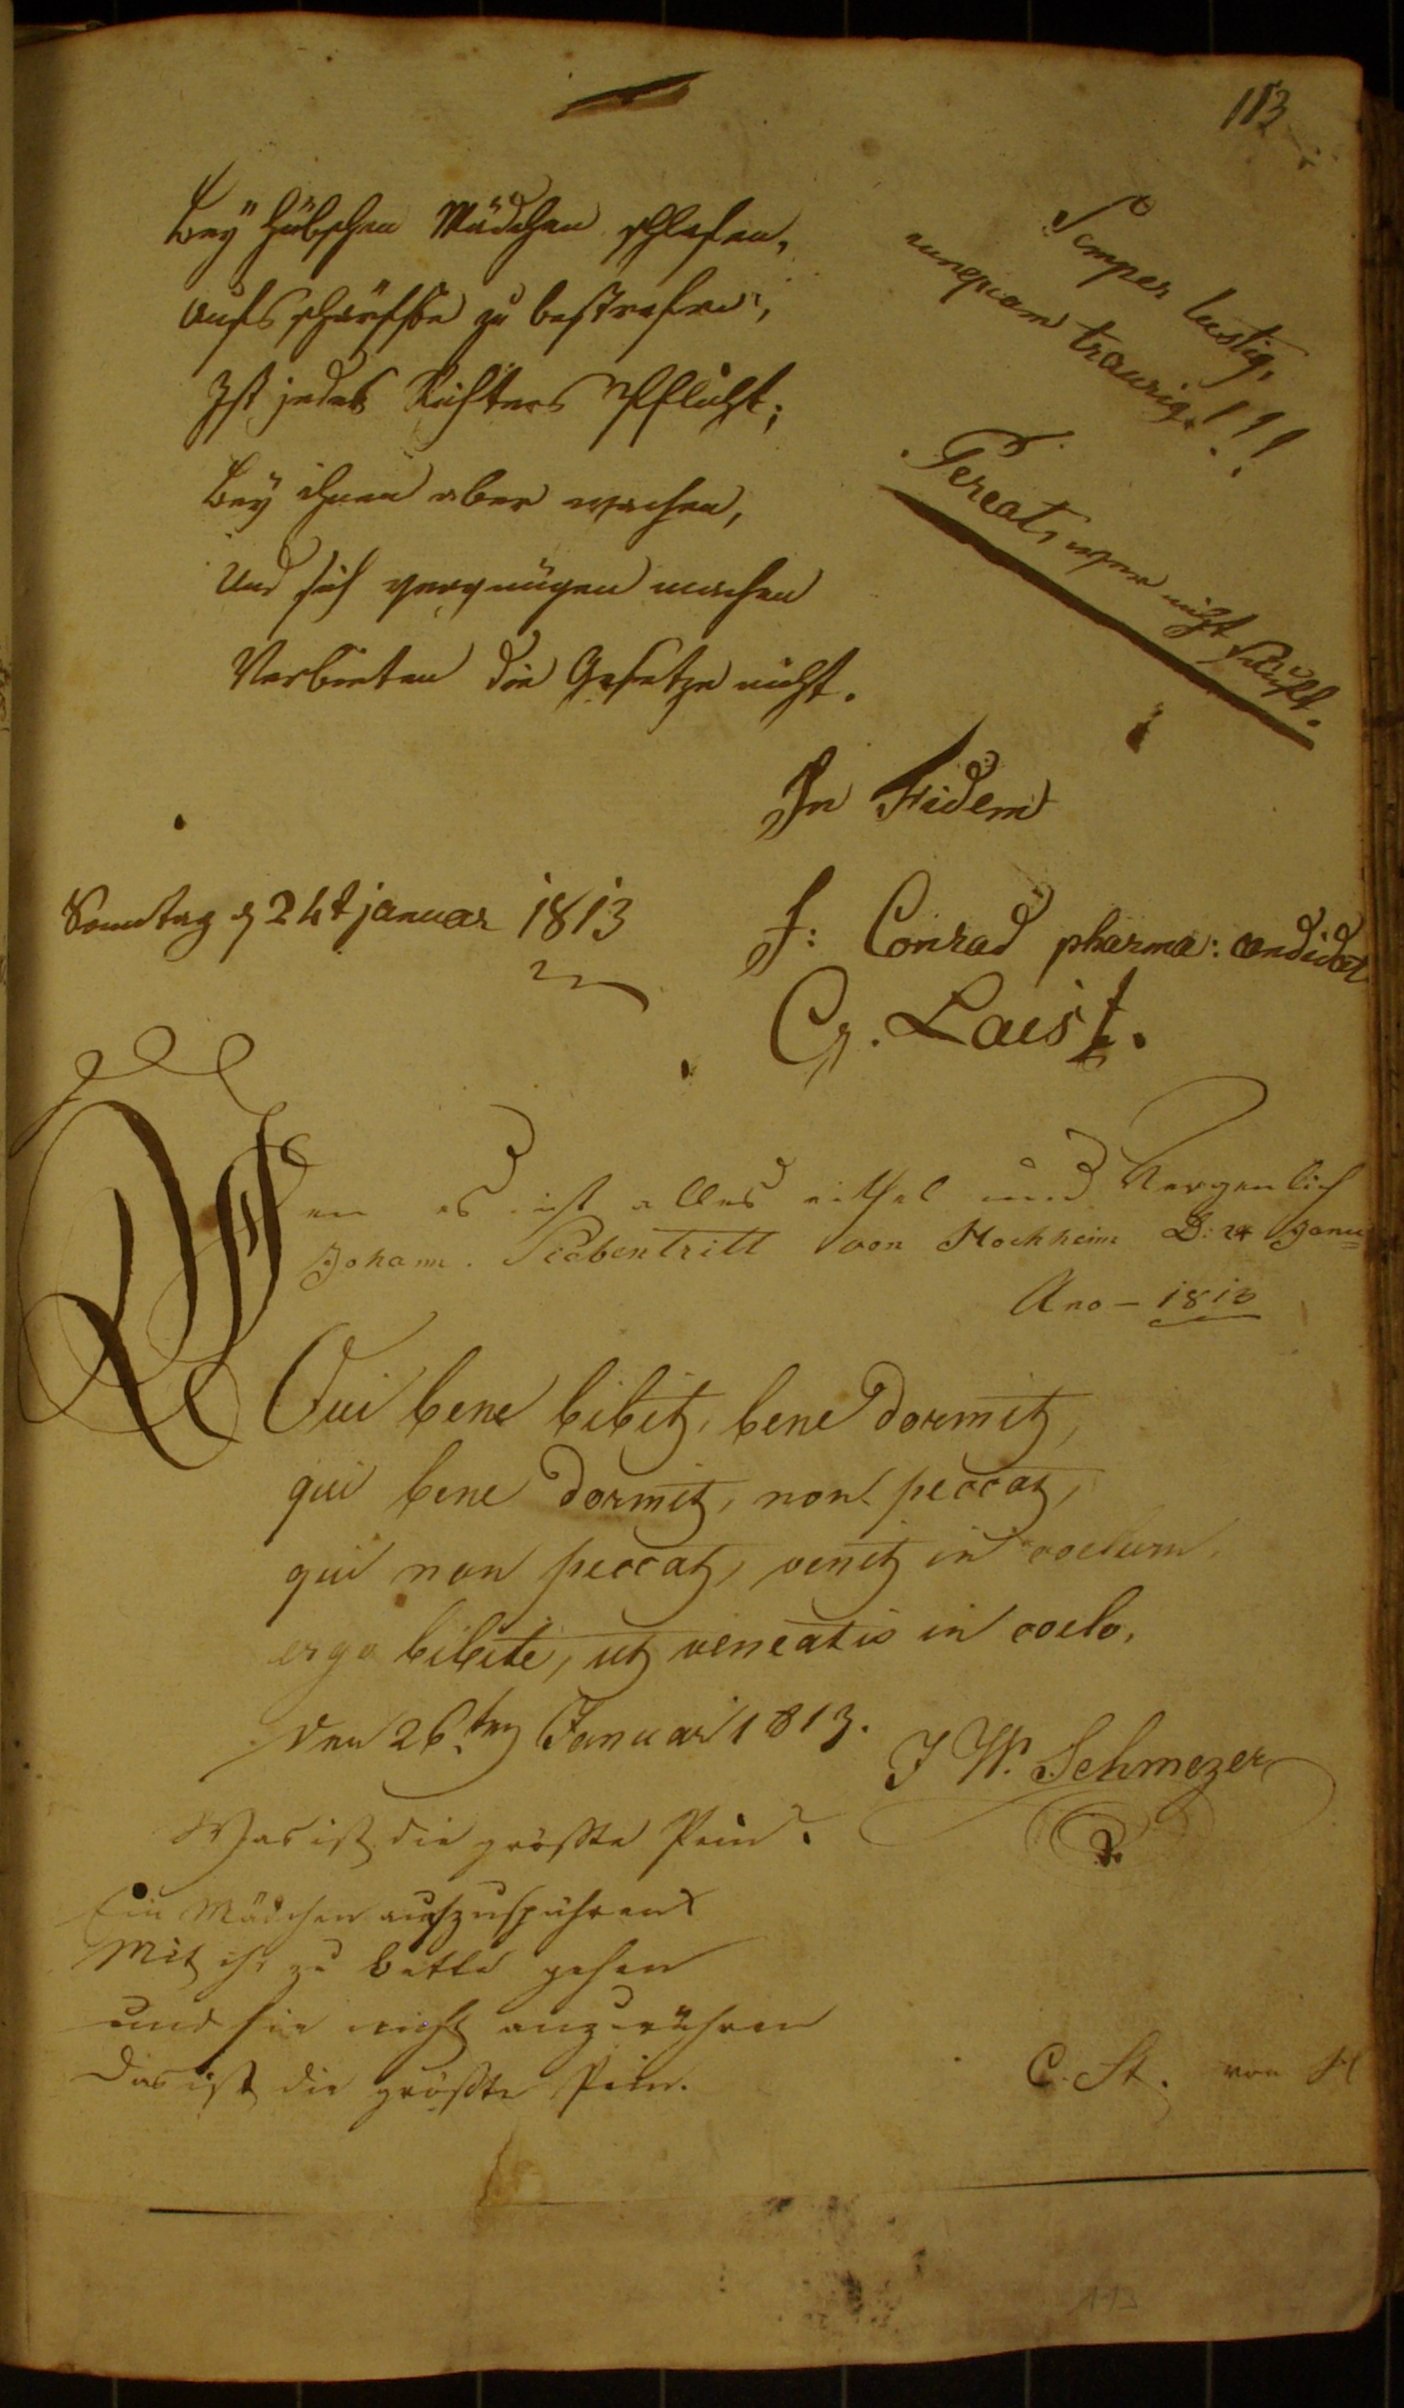 113
Beÿ hübschen Mädchen schlafen,
aufs schärfste zu bestrafen,
Ist jedes Richters Pflicht;
Beÿ ihnen aber wachen,
Und sich vergnügen machen
Verbieten die Gesetze nicht.
Semper lustig,
nunquam traurig!!!
Pereat, wer nicht
In Fidem
Sonntag d 24t januar 1813
J: Conrad pharma: candidat
G. Laist.
Den es ist alles eithel und Vergenlich
Johann. Siebentritt von Hochheim D: 24 Janu
Ano - 1813
Qui bene bibit, bene dormit,
qui bene dormit, non peccat,
qui non peccat, venit in coelum,
ergo bibite, ut veneatis in coelo.
Den 26ten Januar 1813.
J W. Schmezer
Was ist die größte Pein?
Ein Mädchen aufzuspühren
Mit ihr zu bette gehen
und sie nicht anzurühren
Das ist die größte Pein.
C. St. von H
113